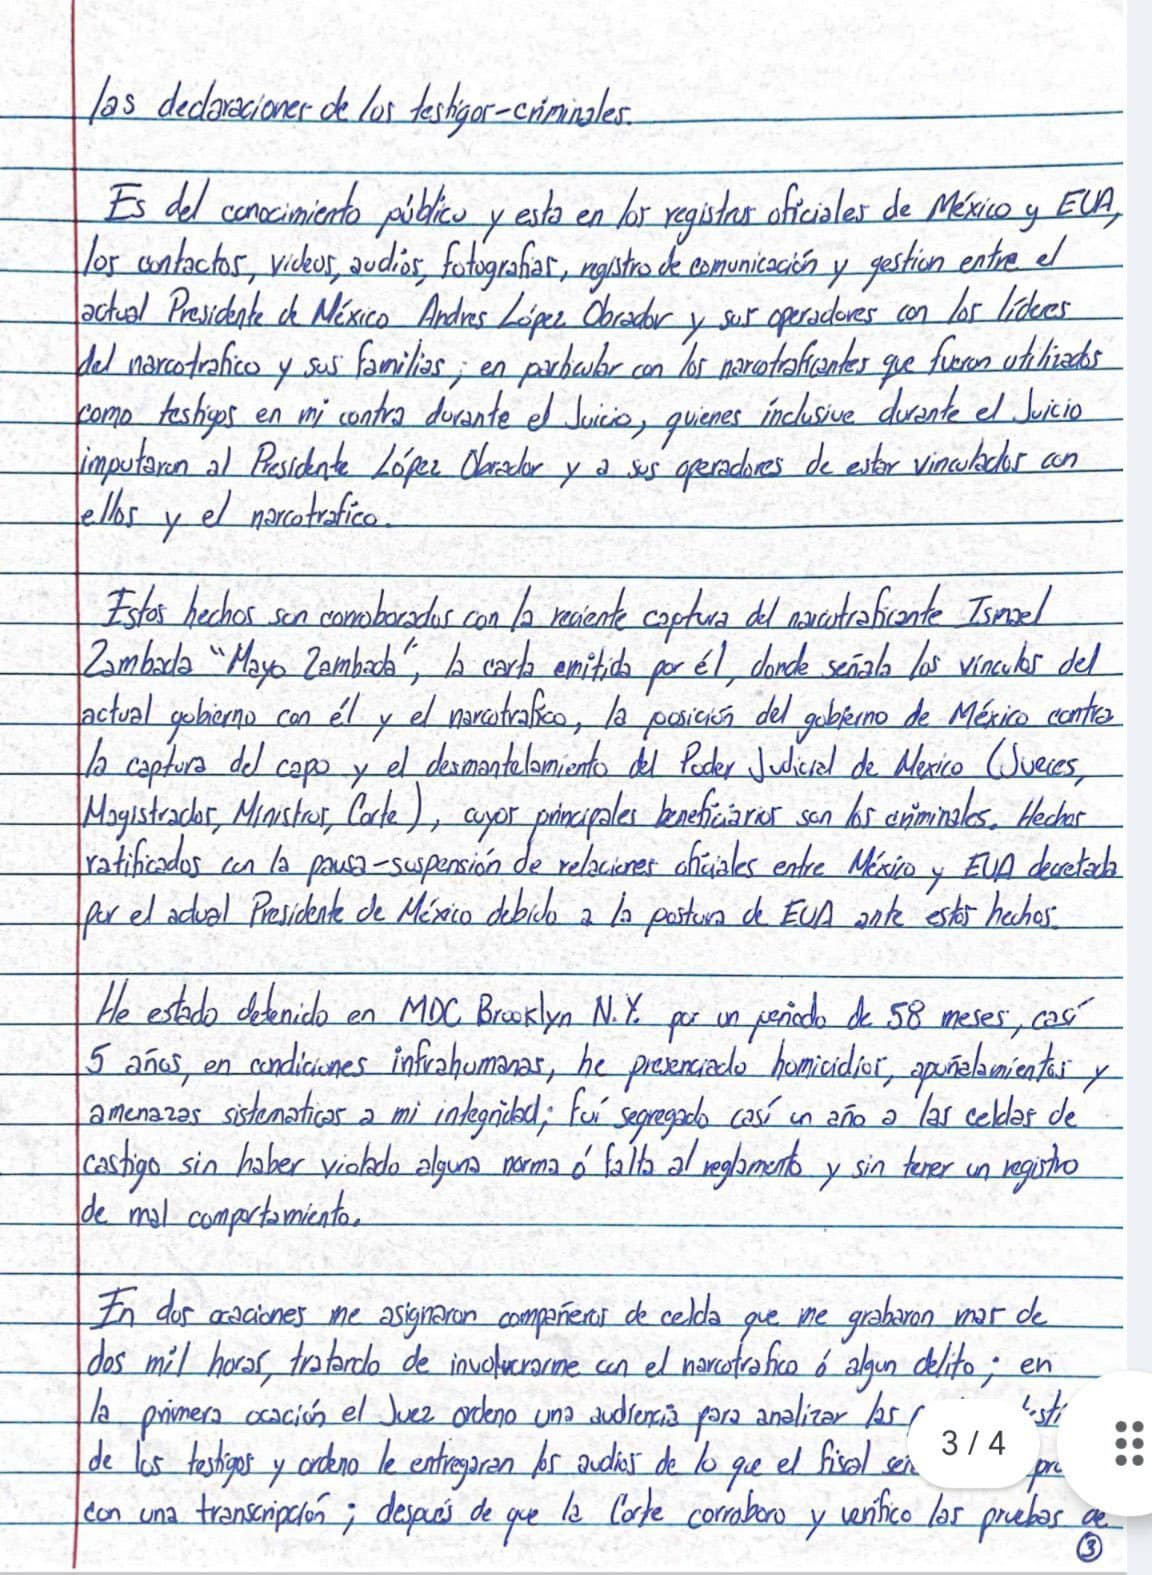 las declaraciones de los testigos-criminales.
Es del conocimiento público y esta en los registros oficiales de México y EUA,
los contactos, videos, audios, fotografias, registro de comunicación y gestion entre el
actual Presidente de México Andres López Obrador y sus operadores con los líderes
del narcotrafico y sus familias; en particular con los narcotraficantes que fueron utilizados
como testigos en mi contra durante el Juicio, quienes inclusive durante el Juicio
imputaron al Presidente López Obrador y a sus operadores de estar vinculados con
ellos y el narcotrafico.
Estos hechos son corroborados con la reciente captura del narcotraficante Ismael
Zambada "Mayo Zambada", la carta emitida por él, donde señala los vinculos del
actual gobierno con él y el narcotrafico, la posición del gobierno de México contra
la captura del capo y el desmantelamiento del Poder Judicial de Mexico (Jueces,
Magistrados, Ministros, Corte), cuyos principales beneficiarios son los criminales. Hechos
ratificados con la pausa-suspensión de relaciones oficiales entre México y EUA decretada
por el actual Presidente de México debido a la postura de EUA ante estos hechos.
He estado detenido en MDC Brooklyn N.Y. por un periodo de 58 meses, casí
5 años, en condiciones infrahumanas, he presenciado homicidios, apuñalamientos y
amenazas sistematicas a mi integridad; fuí segregado casí un año a las celdas de
castigo sin haber violado alguna norma ó falta al reglamento y sin tener un registro
de mal comportamiento.
En dos ocaciones me asignaron compañeros de celda que me grabaron mas de
dos mil horas, tratando de involucrarme con el narcotrafico ó algun delito; en
la primera ocación el Juez ordeno una audiencia para analizar las
de los testigos y ordeno le entregaran los audios de lo que el fiscal
con una transcripción; después de que la Corte corroboro y verifico las pruebas de
3
3 / 4